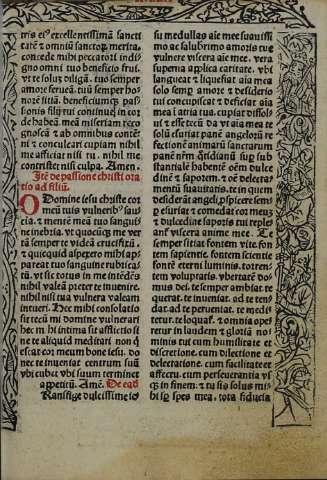 tris ei⁹ excellentissimā sancti
tatē ⁊ omniū sanctoꝝ merita,
concede mihi peccatori indi
gno omni tuo beneficio frui.
vt te solū diligā. tuū semper
amorē feruēā. tuū semper ho
norē sitiā. beneficiumꝗꝫ pass
ionis filij tui continue in cor
de habeā. meā miseriam reco
gnoscā ⁊ ab omnibus contēt
ni ⁊ conculcari cupiam nihil
me afficiat nisi tu . nihil me
contristet nisi culpa. Amen.
Itē de passione christi ora
tio ad filiū.
O Domine iesu christe cor
meū tuis vulnerib⁹ sau
cia. ⁊ mentē meā tuo sangui
ne inebria. vt quocūꝗꝫ me ver
tā semper te videā crucifixū .
⁊ quicquid aspexero mihi ap
pareat tuo sanguine rubrica
tū. vt sic totus in te intendēs
nihil valeā preter te inuenire.
nihil nisi tua vulnera valeam
intueri. Hec mihi consolatio
sit tecū mi domine vulnerari
hec mihi intima sit afflictio si
ne te aliquid meditari non ꝗ
escat cor meum bone iesu. do
nec te inueniat centrum suū
vbi cubet vbi suum terminet
appetitū. Amē. De eadē
Ranstige dulcissime ie
su medullas aīe mee suauissi
mo ac saluberrimo amoris tui
vulnere viscera aīe mee. vera
supernā applica caritate. vt
langueat ⁊ liquefiat aīa mea
solo semꝑ amore ⁊ desiderio
tui concupiscat ⁊ deficiat aīa
mea ī atria tua. cupiat dissol
us ⁊ esse tecū. Da vt aīa mea te
solū esuriat panē angelorū re
fectionē animarū sanctarum
panē nrm̄ quotidianū supersub
stantialē habentē oēm dulce
dinē ⁊ saporem. ⁊ oē delecta
mentū suauitatis. te in quem
desiderāt angeli ꝓspicere sem
per esuriat ⁊ comedat cor meū
⁊ dulcedine saporis tui reple
anť viscera anime mee. Te
semper sitiat fontem vite. fon
tem sapientie. fontem scientie
fontē eterni luminis. torren
tem voluptatis. vbertatē do
mus dei. te semper ambiat te
querat. te inueniat. ad te ten
dat. ad te perueniat. te medi
tetur. te loquať. ⁊ omnia ope
retur in laudem ⁊ gloriā no
minis tui cum humilitate et
discretione. cum dilectione et
delectatione. cum facilitate et
affectu. cum perseuerantia vs
ꝗꝫ in finem. ⁊ tu sis solus mi
hi semꝑ spes mea. tota fiducia